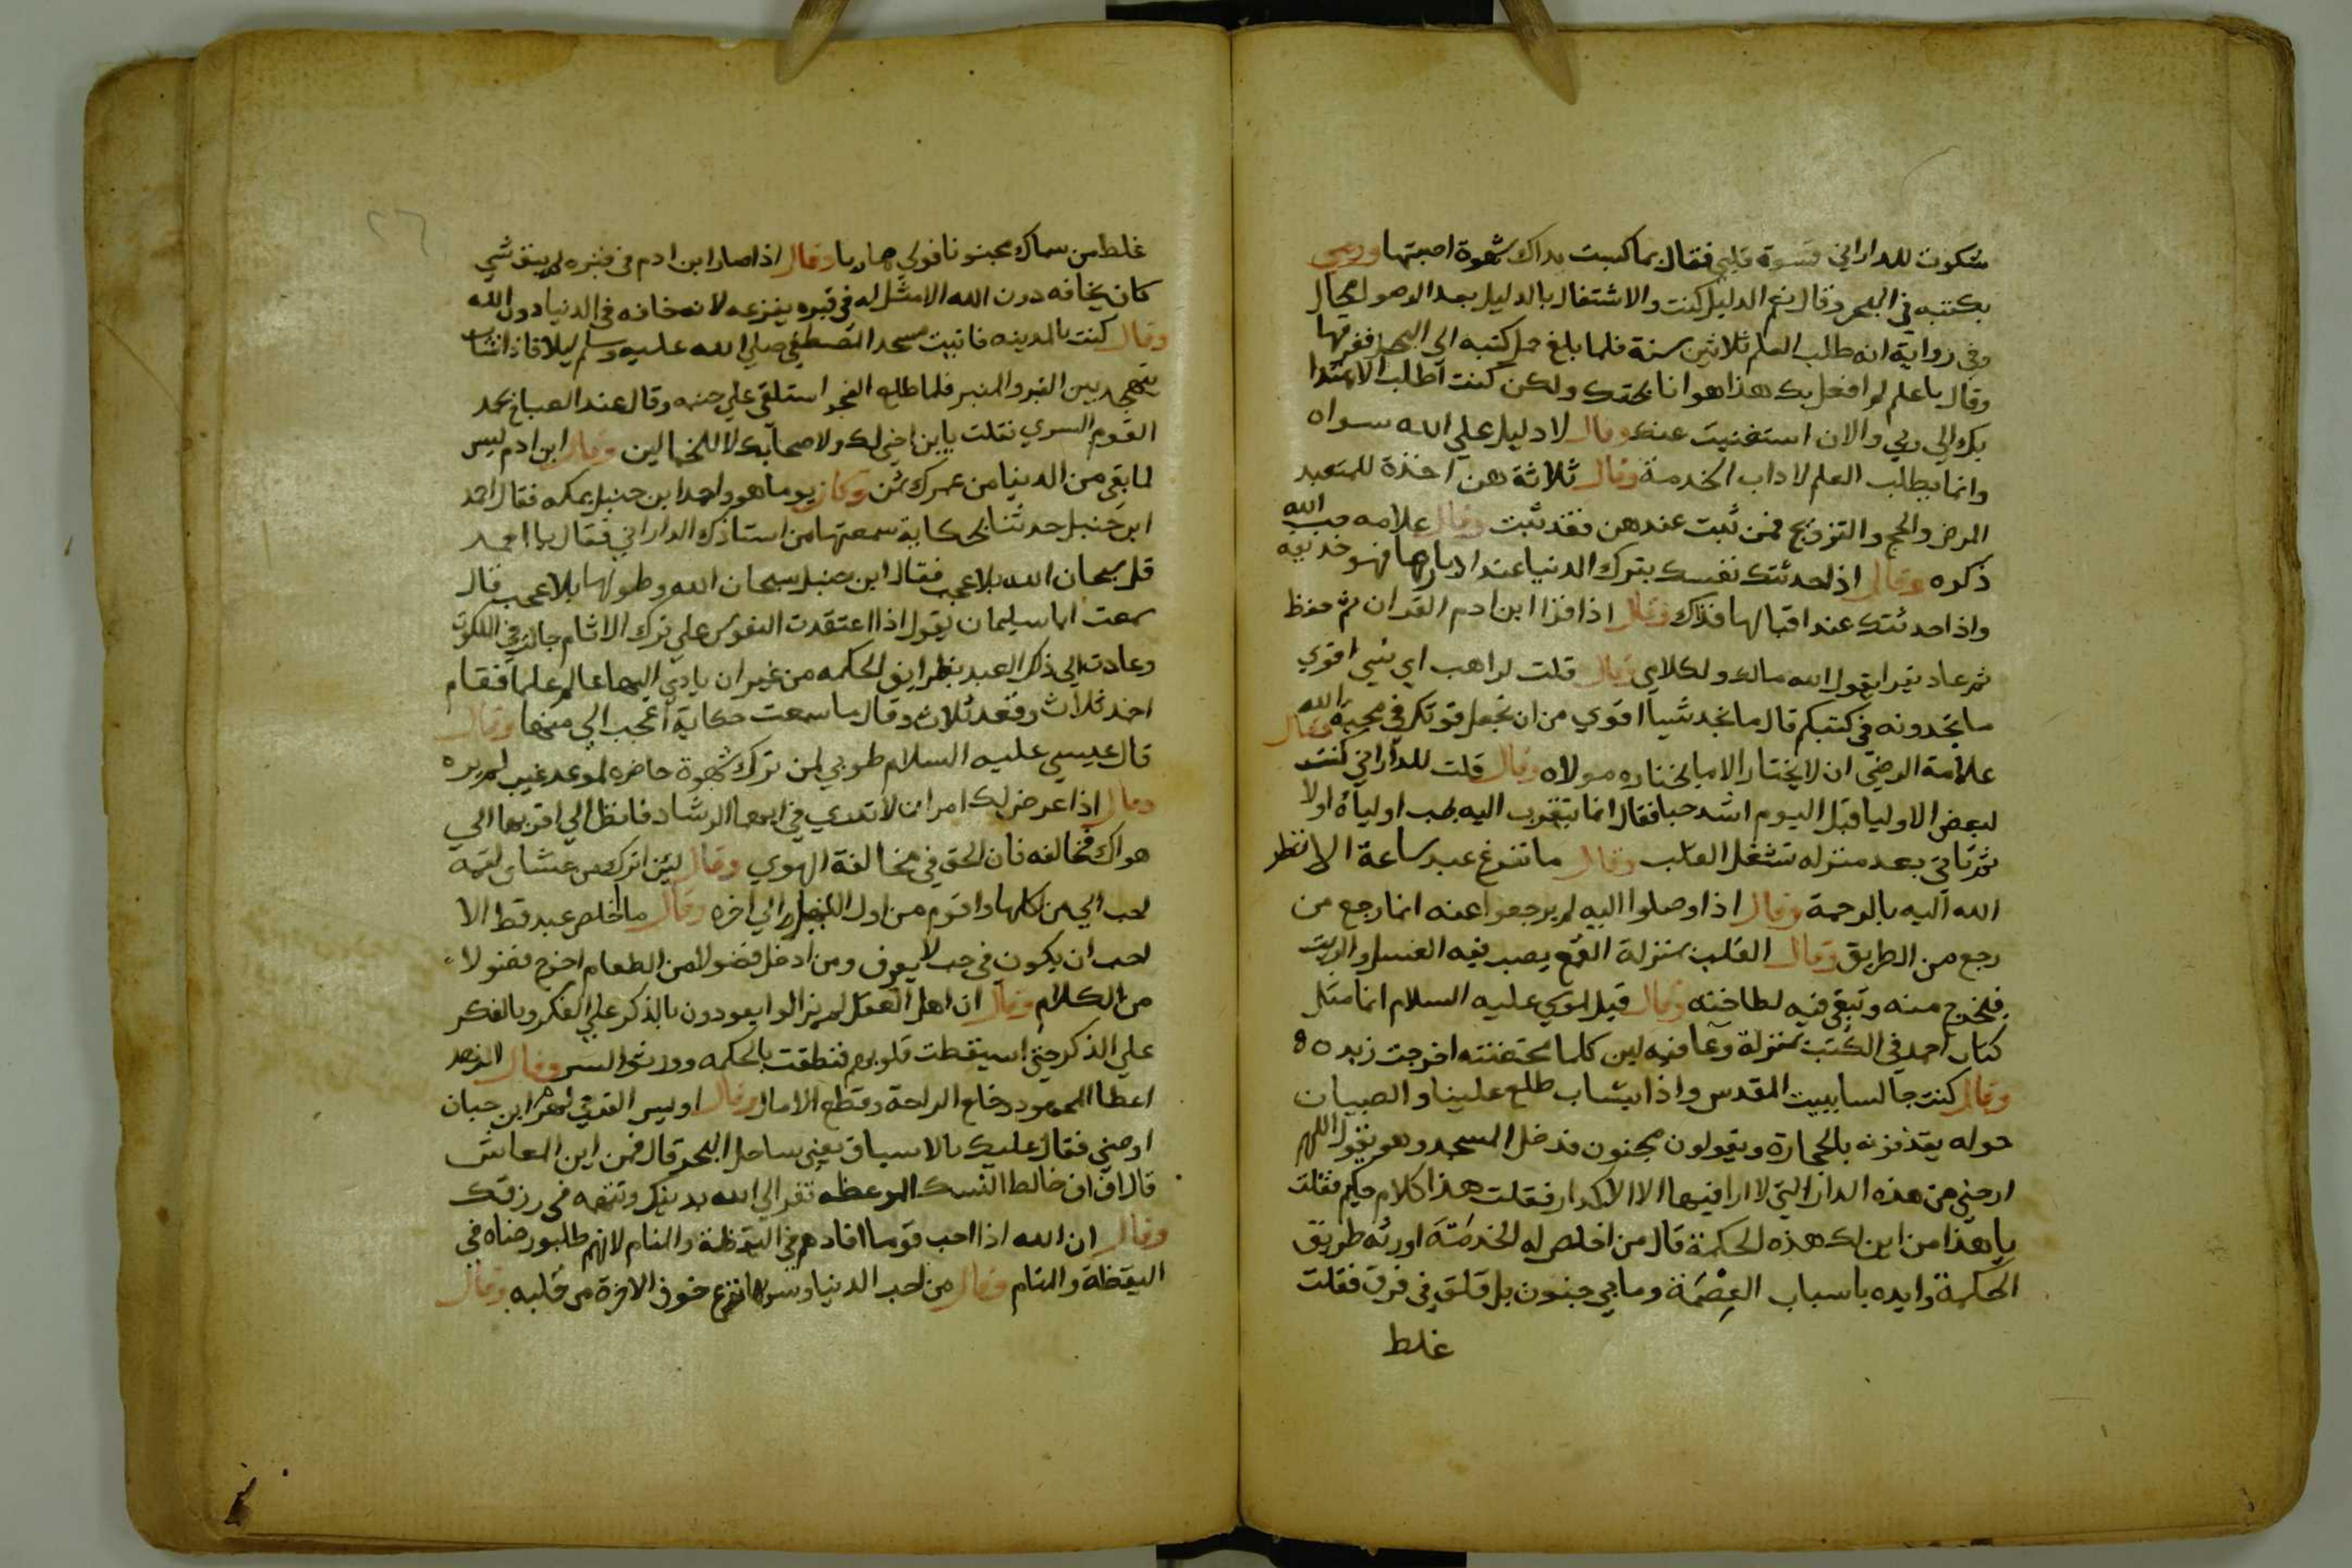 شكوت للداراني قسوة قلبي فقال بما كسبت يداك شهوة اصبتها ورمي
بكتبه في البحر وقال نعم الدليل كنت والاشتغال بالدليل بعد الوصول محال
وفي رواية انه طلب العلم ثلاثين سنة فلما بلغ حمل كتبه الي البحر فغرقها
وقال يا علم لم افعل بك هذا هوانا بحقك ولكن كنت اطلب الاهتدا
بك الي ربي والان استغنيت عنك وقال لا دليل علي الله سواه
وانما يطلب العلم لاداب الخدمة وقال ثلاثة هن آخذة للمتعبد
المرض والحج والتزويج فمن ثبت عندهن فقد ثبت وقال علامه حب الله
ذكره وقال اذا حدثتك نفسك بترك الدنيا عند ادبارها فهو خديعه
واذا حدثتك عند اقبالها فذاك وقال اذا قرا ابن ادم القران ثم خلط
ثم عاد يقرا يقول الله مالك ولكلامي وقال قلت لراهب اي شي اقوي
ما تجدونه في كتبكم قال ما نجد شيا اقوي من ان تجعل قوتك في محبة الله وقال
علامة الرضي ان لا يختار الا ما يختاره مولاه وقال قلت للداراني كنت
لبعض الاوليا قبل اليوم اشد حبا فقال انما تتقرب اليه بحب اولياه اولا
ثم تاتي بعد منزله تشغل القلب وقال ما تفرغ عبد ساعة الا نظر
الله اليه بالرحمة وقال اذا وصلوا اليه لم يرجعوا عنه انما رجع من
رجع من الطريق وقال القلب بمنزلة القمع يصب فيه العسل والزيت
فيخرج منه وتبقي فيه لطاخته وقال قيل لموسي عليه السلام انما مثل
كتاب احمد في الكتب بمنزلة وعا فيه لبن كلما مخضته اخرجت زبده
وقال كنت جالسا ببيت المقدس واذا بشاب طلع علينا والصبيان
حوله يقذفونه بالحجارة ويقولون مجنون فدخل المسجد وهو يقول اللهم
ارحني من هذه الدار التي لا ارا فيها الا الاكدار فقلت هذا كلام حكيم فقلت
يا هذا من اين لك هذه الحكمة قال من اخلص له الخدمَة اورثه طريق
الحكمة وايده باسباب العِصْمَة وما بي جنون بل قلق في فرق فقلت
غلط
٢٦
غلط من سماك مجنونا فولي هاربا وقال اذا صار ابن ادم في قبره لم يبق شي
كان يخافه درن الله الا مثل له في قبره يفزعه لانه خافه في الدنيا دون الله
وقال كنت بالمدينه فاتيت مسجد المصطفي صلي الله عليه وسلم ليلا فاذا شاب
يتهجد بين القبر والمنبر فلما طلع الفجر استلقي علي جنبه وقال عند الصباح يحمد
القوم السري فقلت يا ابن اخي لك ولاصحابك لا للحمالين وقال ابن ادم ليس
لما بقي من الدنيا من عمرك ثمن وكان يوما هو واحمد ابن حنبل بمكه فقال احمد
ابن حنبل حدثنا بحكاية سمعتها من استاذك الداراني فقال يا احمد
قل سبحان الله بلا عجب فقال ابن حنبل سبحان الله وطولها بلا عجب قال
سمعت ابا سليمان يقول اذا اعتقدت النفوس علي ترك الاثام جالت في الملكوت
وعادت الي ذكر العبد بطرايق الحكمه من غير ان يادي اليها عالم علما فقام
احمد ثلاث وقعد ثلاث وقال ما سمعت حكاية اعجب الي منها وقال
قال عيسي عليه السلام طوبي لمن ترك شهوة حاضره لموعد غيب لم يره
وقال اذا عرض لك امران لا تدري في ايهما الرشاد فانظر الي اقربهما الي
هواك فخالفه فان الحق في مخالفة الهوي وقال لئن اترك من عشاي لقمه
احب الي من اكلها واقوم من اول الليل الي اخره وقال ما اخلص عبد قط الا
احب ان يكون في جب لا يعرف ومن ادخل فضولا من الطعام اخرج فضولا
من الكلام وقال ان اهل العقل لم يزالوا يعودون بالذكر علي الفكر وبالفكر
علي الذكر حتي استيقظت قلوبهم فنطقت بالحكمه وورثوا السر وقال الزهد
اعطا المجهود وخلع الراحة وقطع الامال وقال اويس القرني لهرم ابن حبان
اوصني فقال عليك بالاسياف يعني ساحل البحر قال فمن اين المعاش
قال اف اف خالط الشك الموعظه تفر الي الله بدينك وتتهمه في رزقك
وقال ان الله اذا احب قوما افادهم في اليقظة والمنام لانهم طلبوا رضاه في
اليقظة والمنام وقال من احب الدنيا وسر بها نزع خوف الاخرة من قلبه وقال